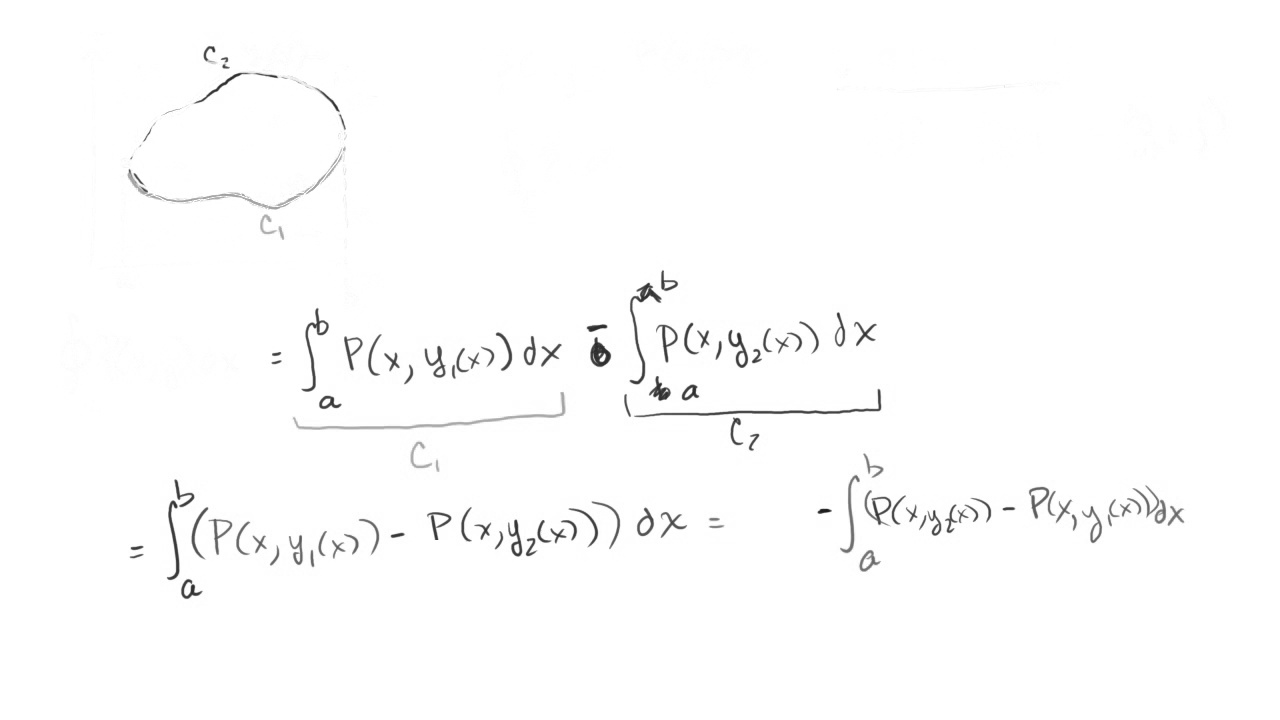 C₂
C₁
= ∫ₐᵇ P(x, y₁(x)) dx - ∫ₐᵇ P(x, y₂(x)) dx
C₁ C₂
= ∫ₐᵇ (P(x, y₁(x)) - P(x, y₂(x))) dx = - ∫ₐᵇ (P(x, y₂(x)) - P(x, y₁(x))) dx